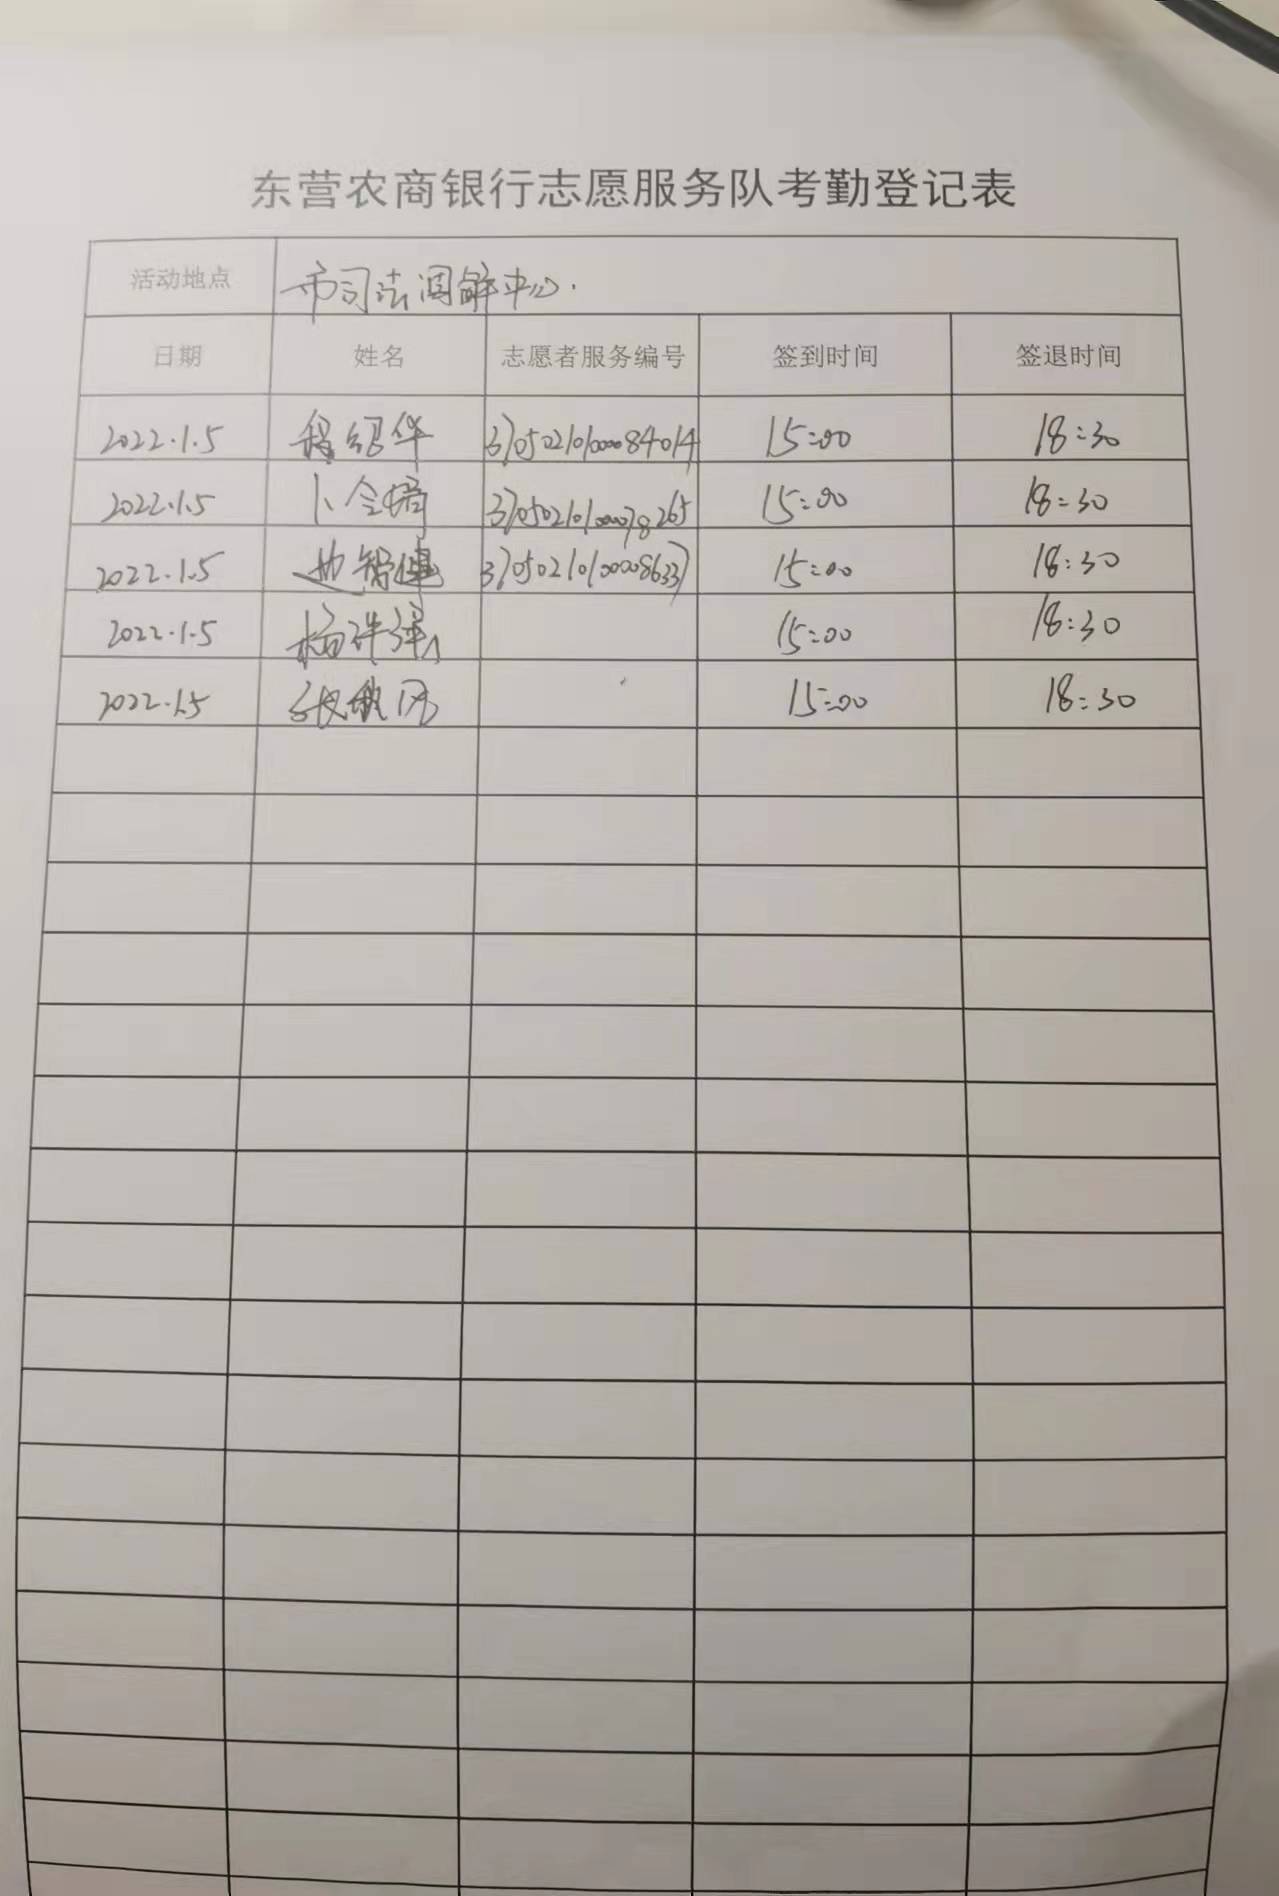 东营农商银行志愿服务队考勤登记表
活动地点 市司法调解中心.
日期 姓名 志愿者服务编号 签到时间 签退时间
2022.1.5 程绍华 37050210100084014 15:00 18:30
2022.1.5 卜令培 37050210100078265 15:00 18:30
2022.1.5 15:00 18:30
2022.1.5 杨 15:00 18:30
2022.1.5 张 15:00 18:30